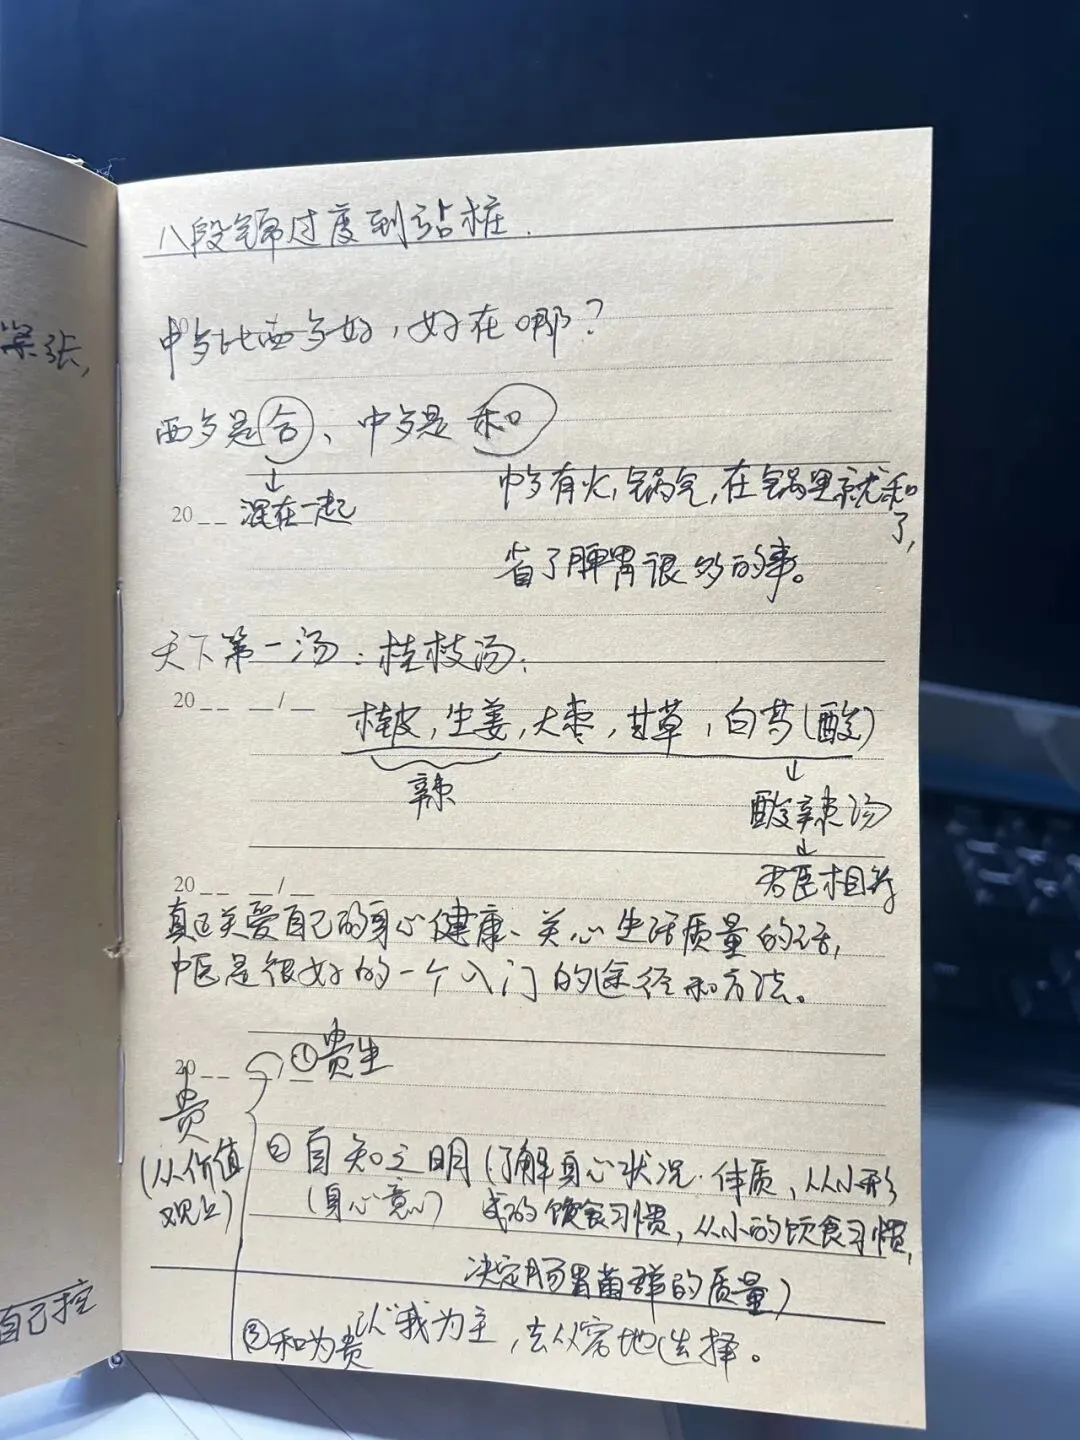 紧张,
自己控
八段锦过度到站桩.
中歺比西歺好,好在哪?
西歺是合、中歺是和
↓
混在一起
中歺有火,锅气,在锅里就和了,
省了脾胃很多的事。
20__
天下第一汤:桂枝汤:
20__ __/__
桂皮,生姜,大枣,甘草,白芍(酸)
辣
↓
酸辣汤
↓
君臣相
20__ __/__
真正关爱自己的身心健康、关心生活质量的话,
中医是很好的一个入门的途径和方法。
20__
①贵生
贵
(从价值
观上)
②自知之明(了解身心状况.体质、从小形
(身心意) 成的饮食习惯,从小的饮食习惯,
决定肠胃菌群的质量)
③和为贵 以"我为主,去从容地选择。